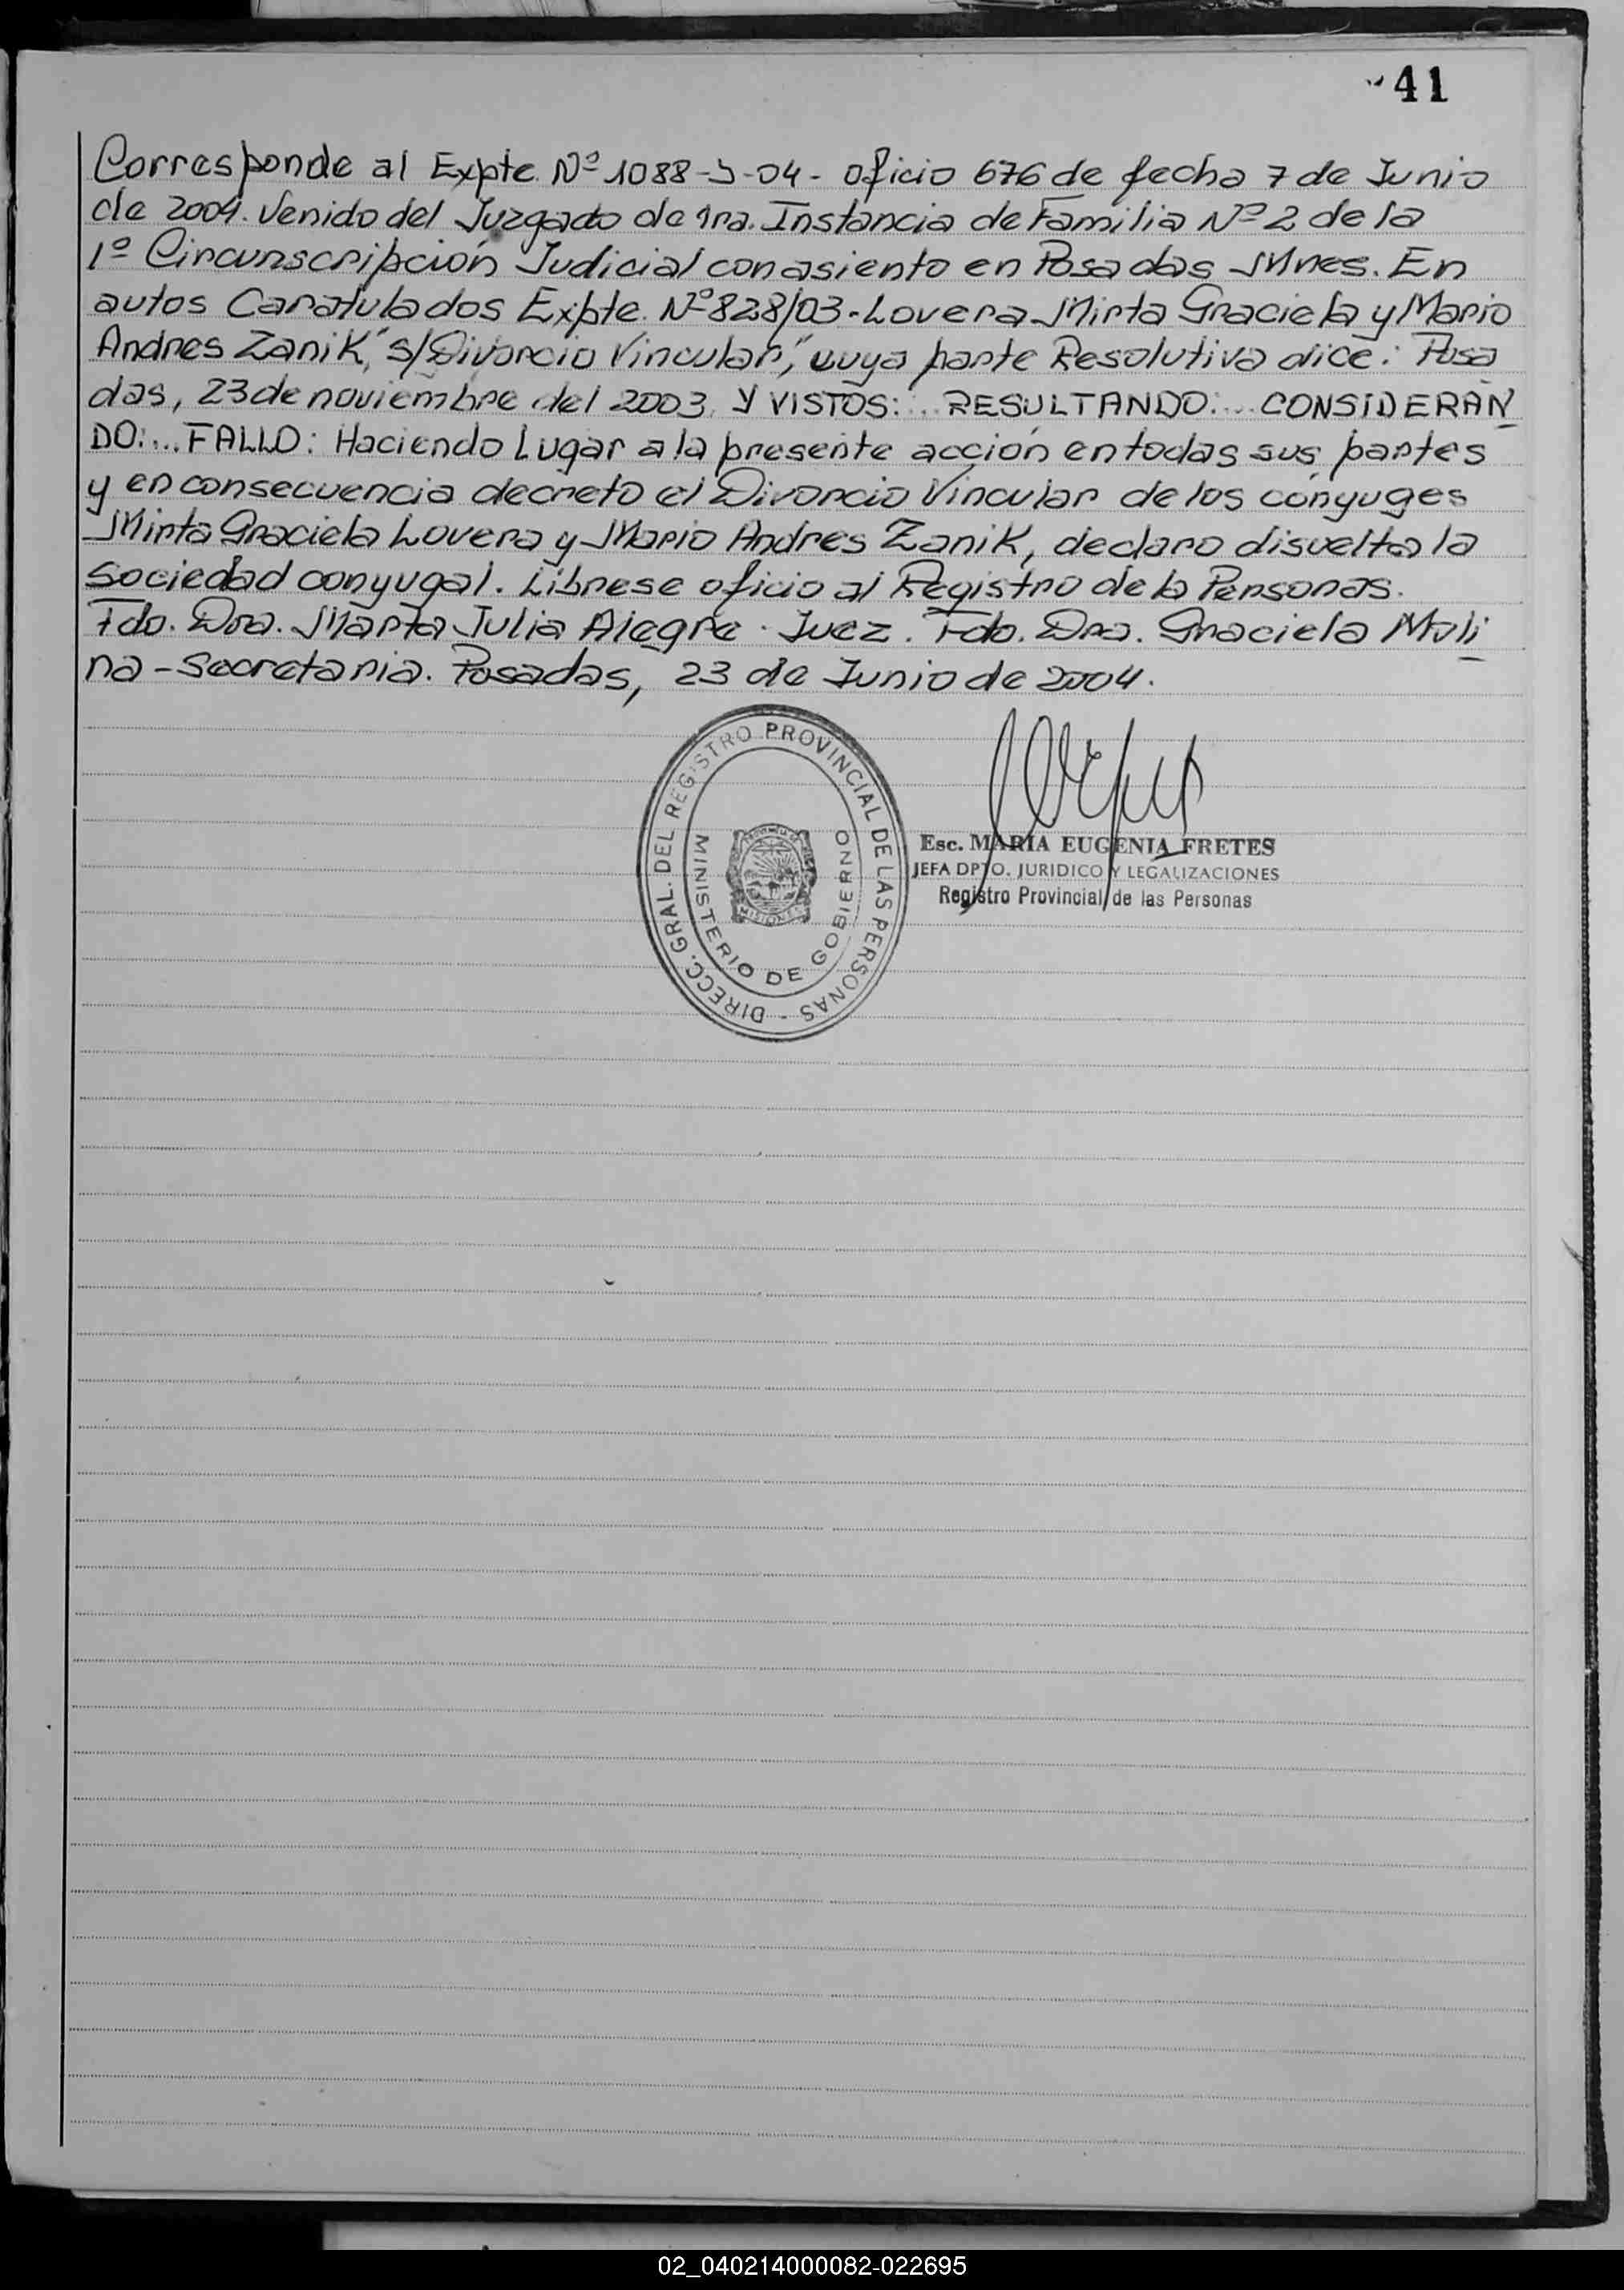 41
Corresponde al Expte. Nº 1088-J-04- Oficio 676 de fecha 7 de Junio
de 2004. Venido del Juzgado de 1ra. Instancia de Familia Nº 2 de la
1º Circunscripción Judicial con asiento en Posadas Mnes. En
autos Caratulados Expte. Nº 828/03-Lovera Mirta Graciela y Mario
Andres Zanik" s/Divorcio Vincular", cuya parte Resolutiva dice: Posa
das, 23 de noviembre del 2003. Y VISTOS:... RESULTANDO:... CONSIDERAN
DO:... FALLO: Haciendo Lugar a la presente acción en todas sus partes
y en consecuencia decreto el Divorcio Vincular de los cónyuges
Mirta Graciela Lovera y Mario Andres Zanik, declaro disuelta la
Sociedad conyugal. Librese oficio al Registro de la Personas.
Fdo. Dra. Marta Julia Alegre. Juez. Fdo. Dra. Graciela Moli
na - Secretaria. Posadas, 23 de Junio de 2004.
DIRECC. GRAL. DEL REGISTRO PROVINCIAL DE LAS PERSONAS -
MINISTERIO DE GOBIERNO
PROVINCIA DE
MISIONES
Esc. MARIA EUGENIA FRETES
JEFA DPTO. JURIDICO Y LEGALIZACIONES
Registro Provincial de las Personas
02_040214000082-022695